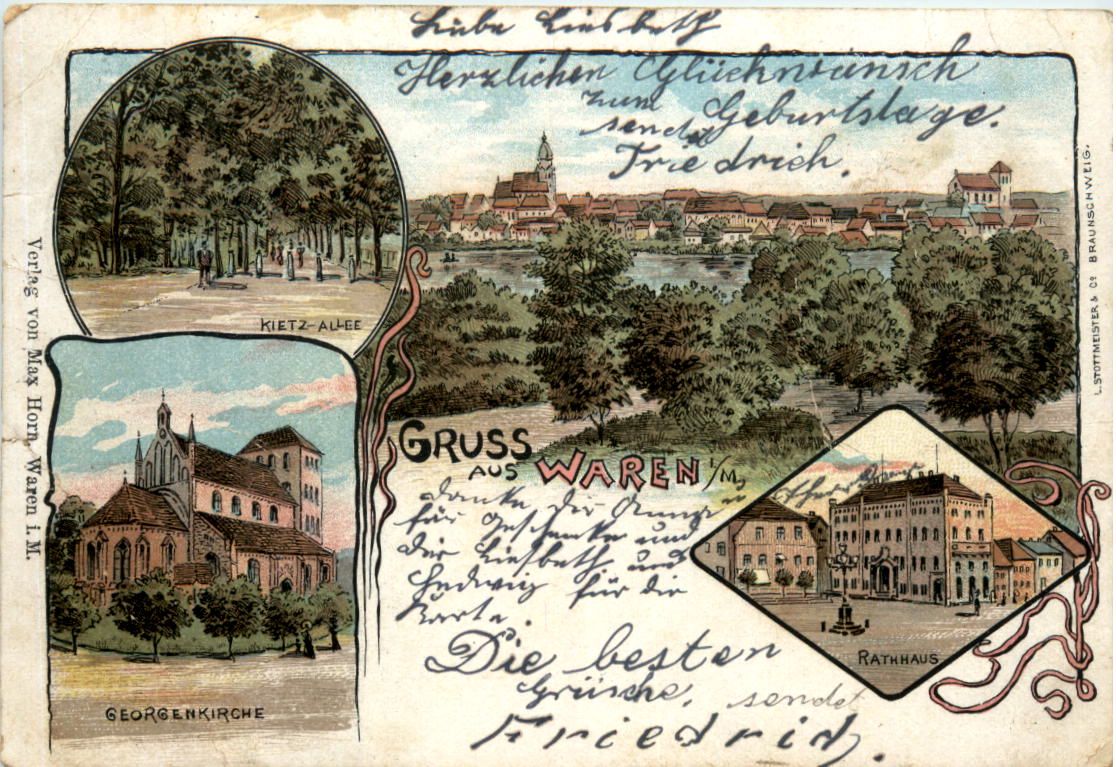 Liebe Liesbeth
Herzlichen Glückwunsch
zum Geburtstage.
sendet
Friedrich.
KIETZ-ALLEE
Verlag von Max Horn, Waren i. M.
L. STOTTMEISTER & Co. BRAUNSCHWEIG.
GRUSS
AUS WAREN I/M.
danke Dir
für Geschenke und
die Liesbeth und
Hedwig für die
Karte.
Die besten
Grüsche, sendet
Friedrich.
GEORGENKIRCHE
RATHHAUS